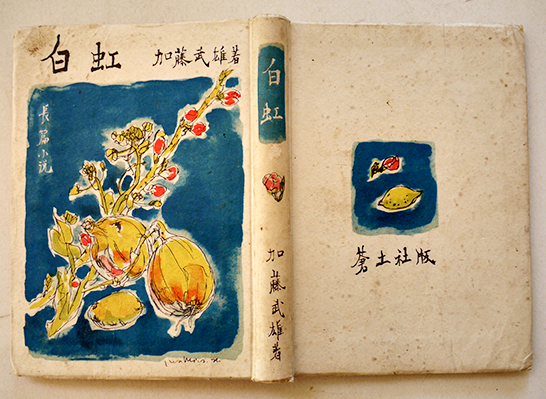 白虹
加藤武雄著
長篇小説
白虹
加藤武雄著
蒼土社版